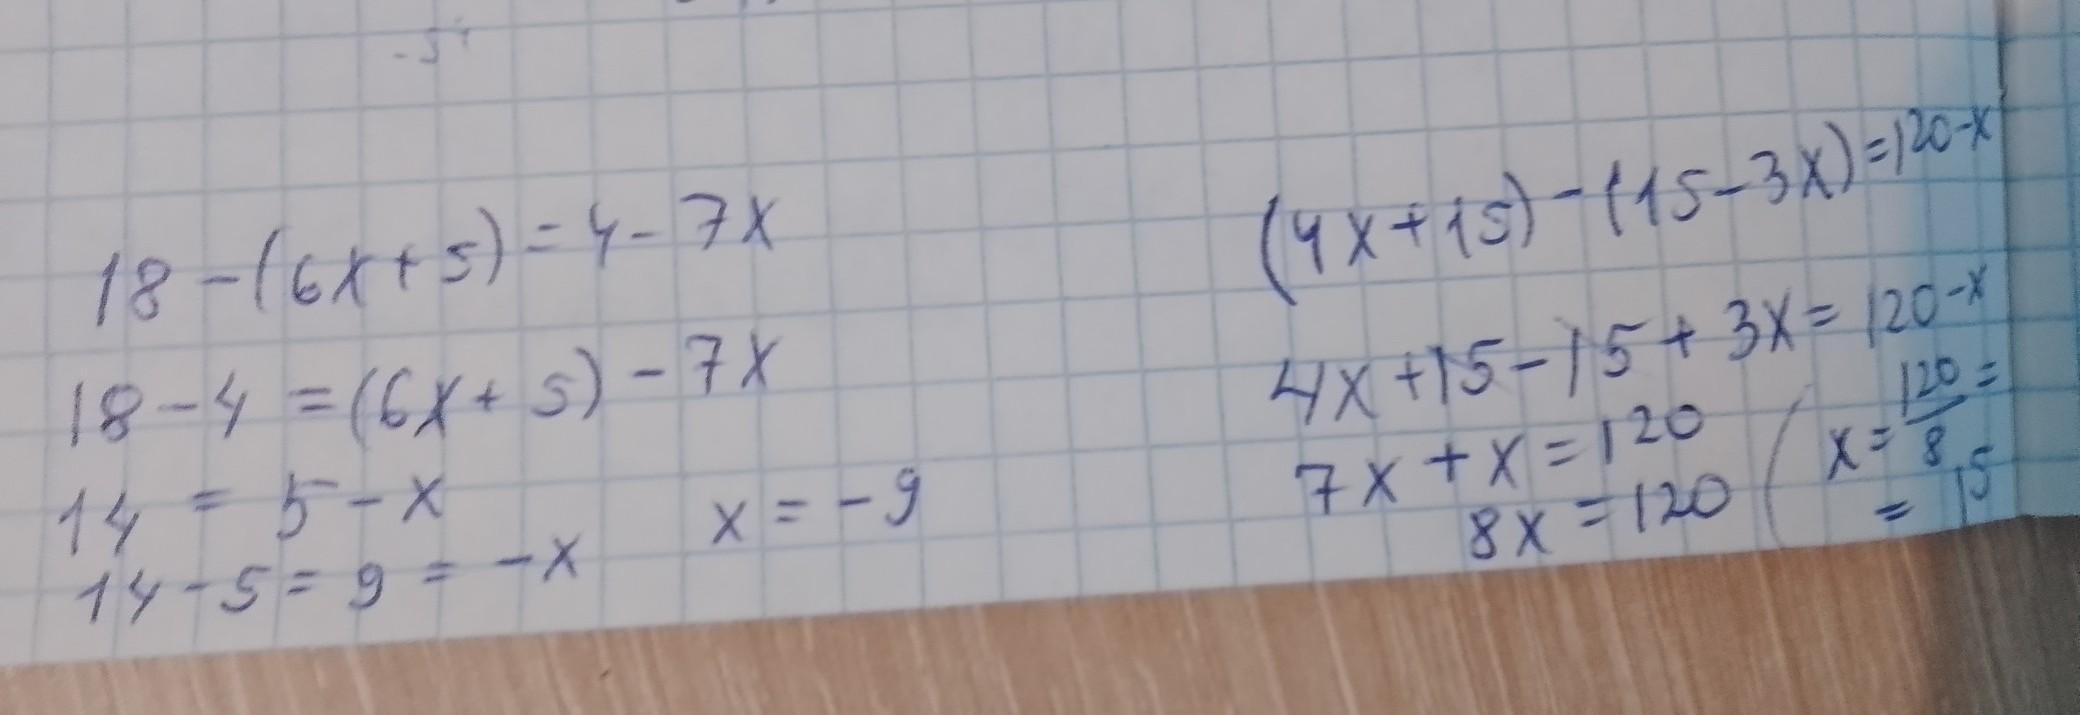 18-(6x+5)=4-7x
18-4=(6x+5)-7x
14=5-x
14-5=9=-x
x=-9
(4x+15)-(15-3x)=120-x
4x+15-15+3x=120-x
7x+x=120
8x=120
x=120/8=
=15